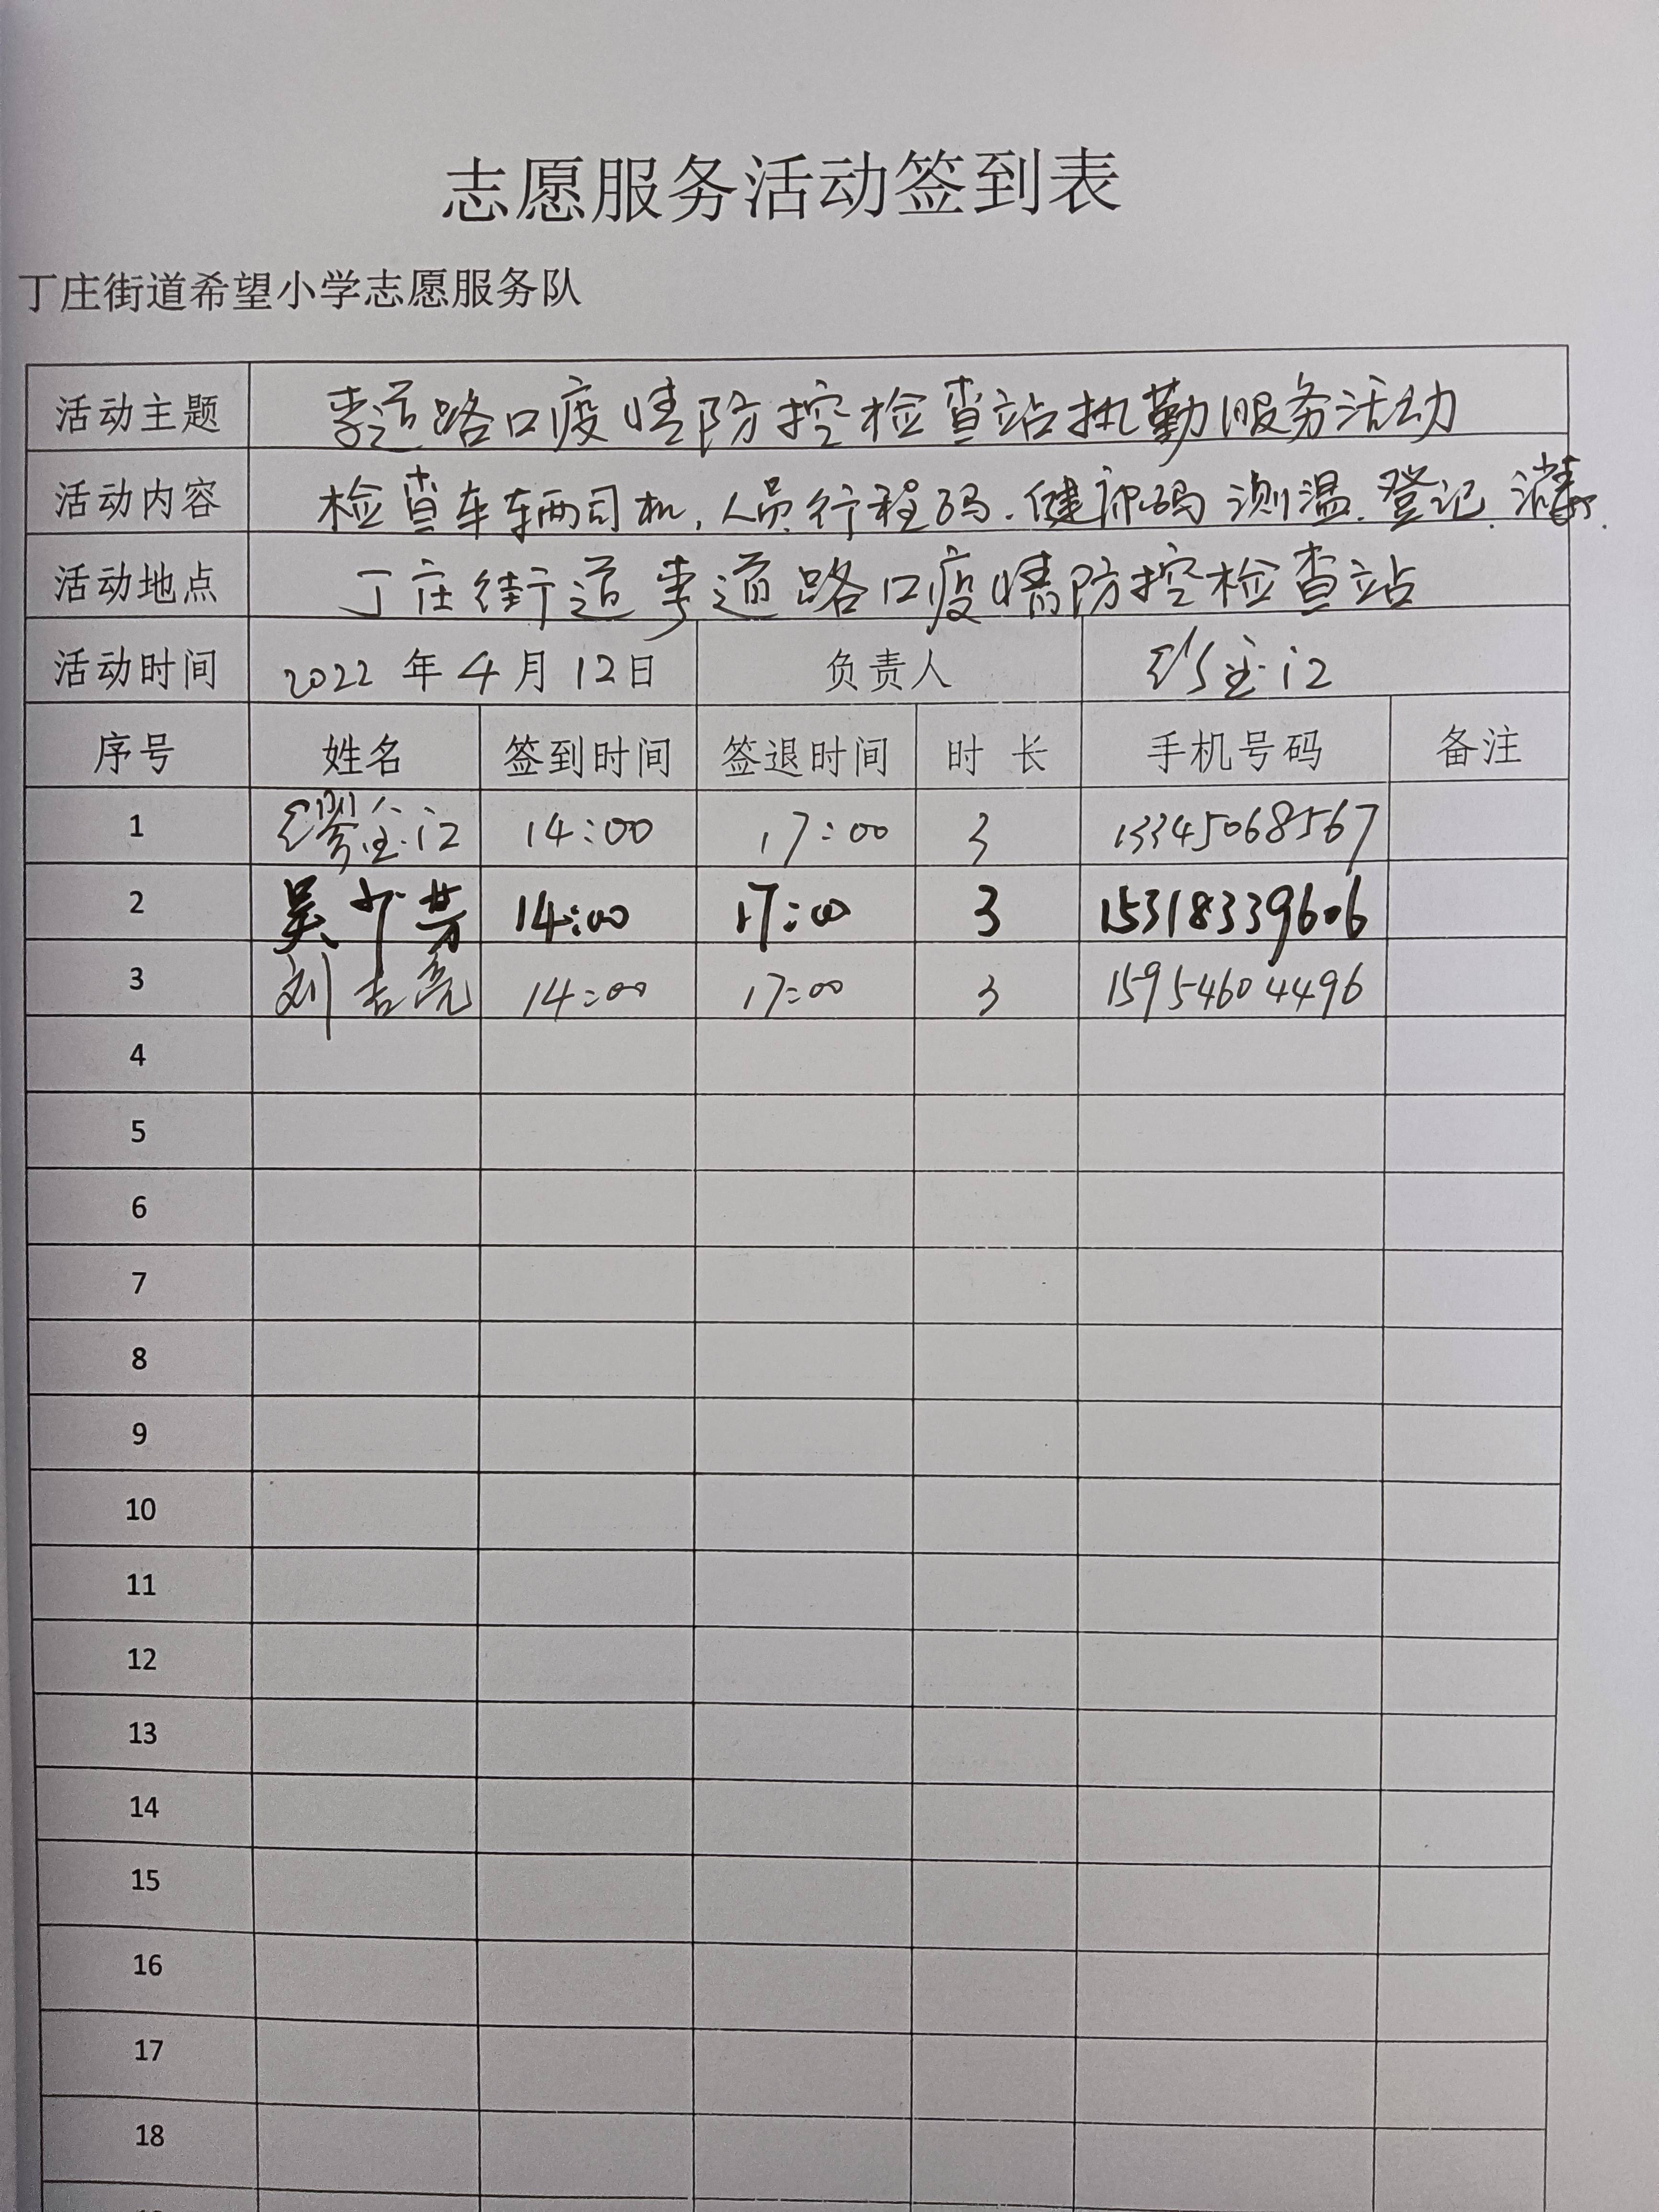 志愿服务活动签到表
丁庄街道希望小学志愿服务队
活动主题 李道路口疫情防控检查站执勤服务活动
活动内容 检查车辆司机,人员行程码.健康码 测温.登记.消毒.
活动地点 丁庄街道李道路口疫情防控检查站
活动时间 2022年4月12日 负责人
序号 姓名 签到时间 签退时间 时长 手机号码 备注
1 缪金江 14:00 17:00 3 13345068567
2 吴 芳 14:00 17:00 3 15318339606
3 刘吉亮 14:00 17:00 3 15954604496
4
5
6
7
8
9
10
11
12
13
14
15
16
17
18